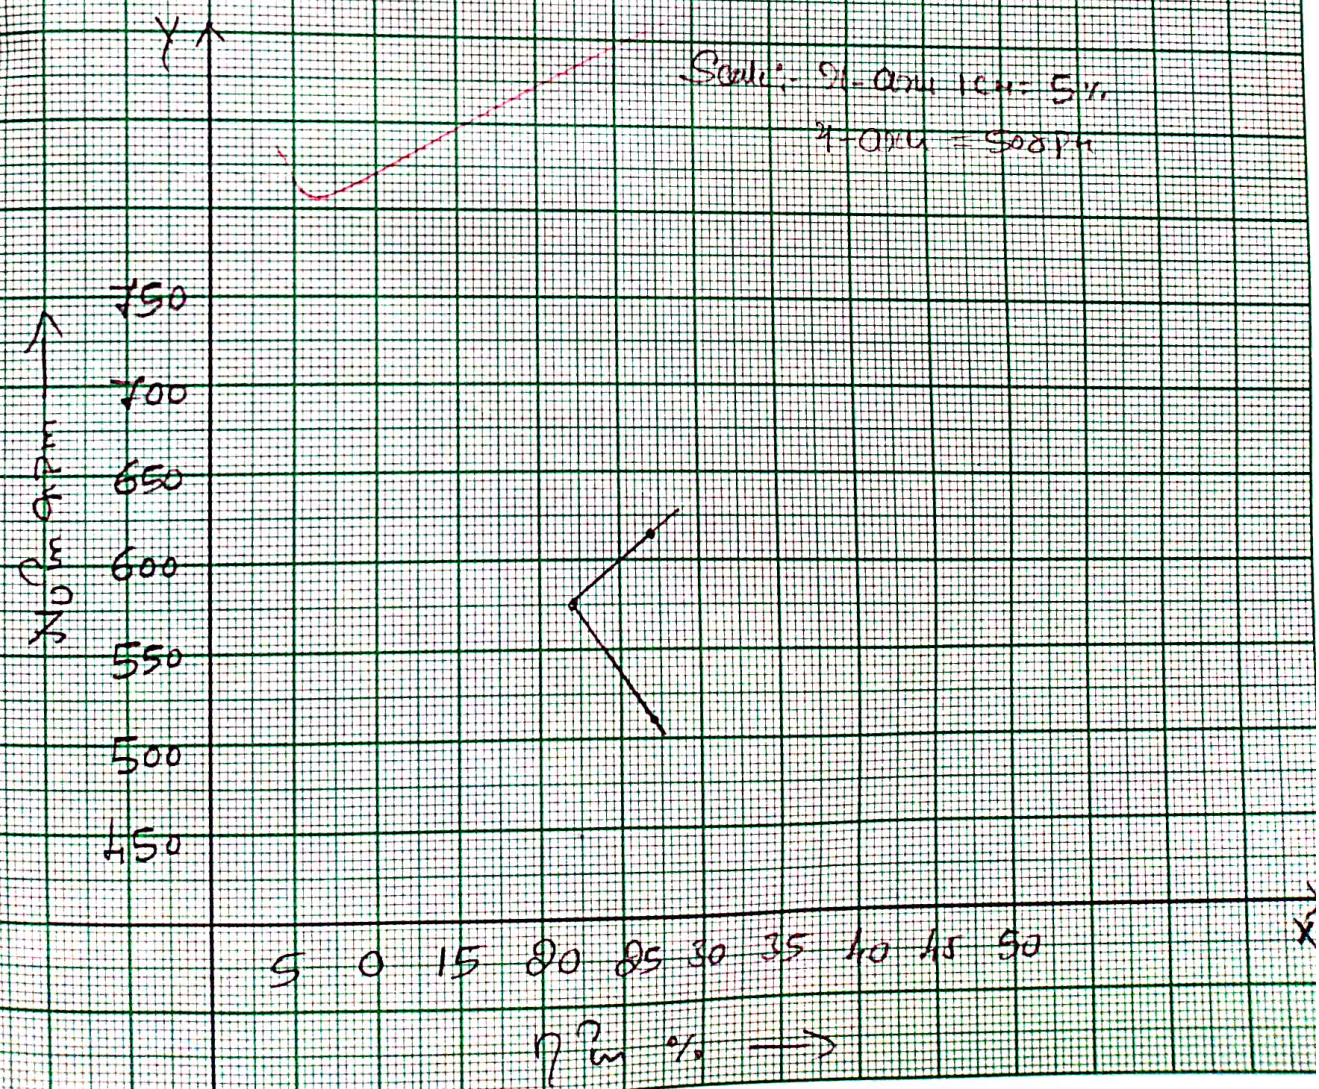 Y
Scale:- x-axis 1cm = 5%
Y-axis = 50rpm
750
700
650
600
550
500
450
N in rpm
5 0 15 20 25 30 35 40 45 50
X
η in %